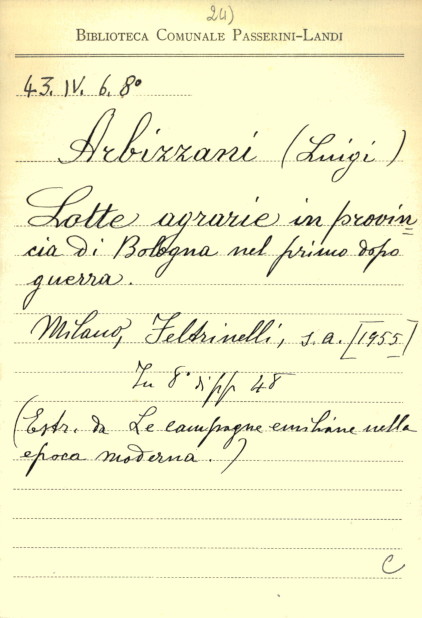 24)
BIBLIOTECA COMUNALE PASSERINI-LANDI
43. IV. 6. 8°
Arbizzani (Luigi)
Lotte agrarie in provin=
cia di Bologna nel primo dopo
guerra.
Milano, Feltrinelli, s.a. [1955]
In 8° di pp. 48
(Estr. da Le campagne emiliane nella
epoca moderna.)
C